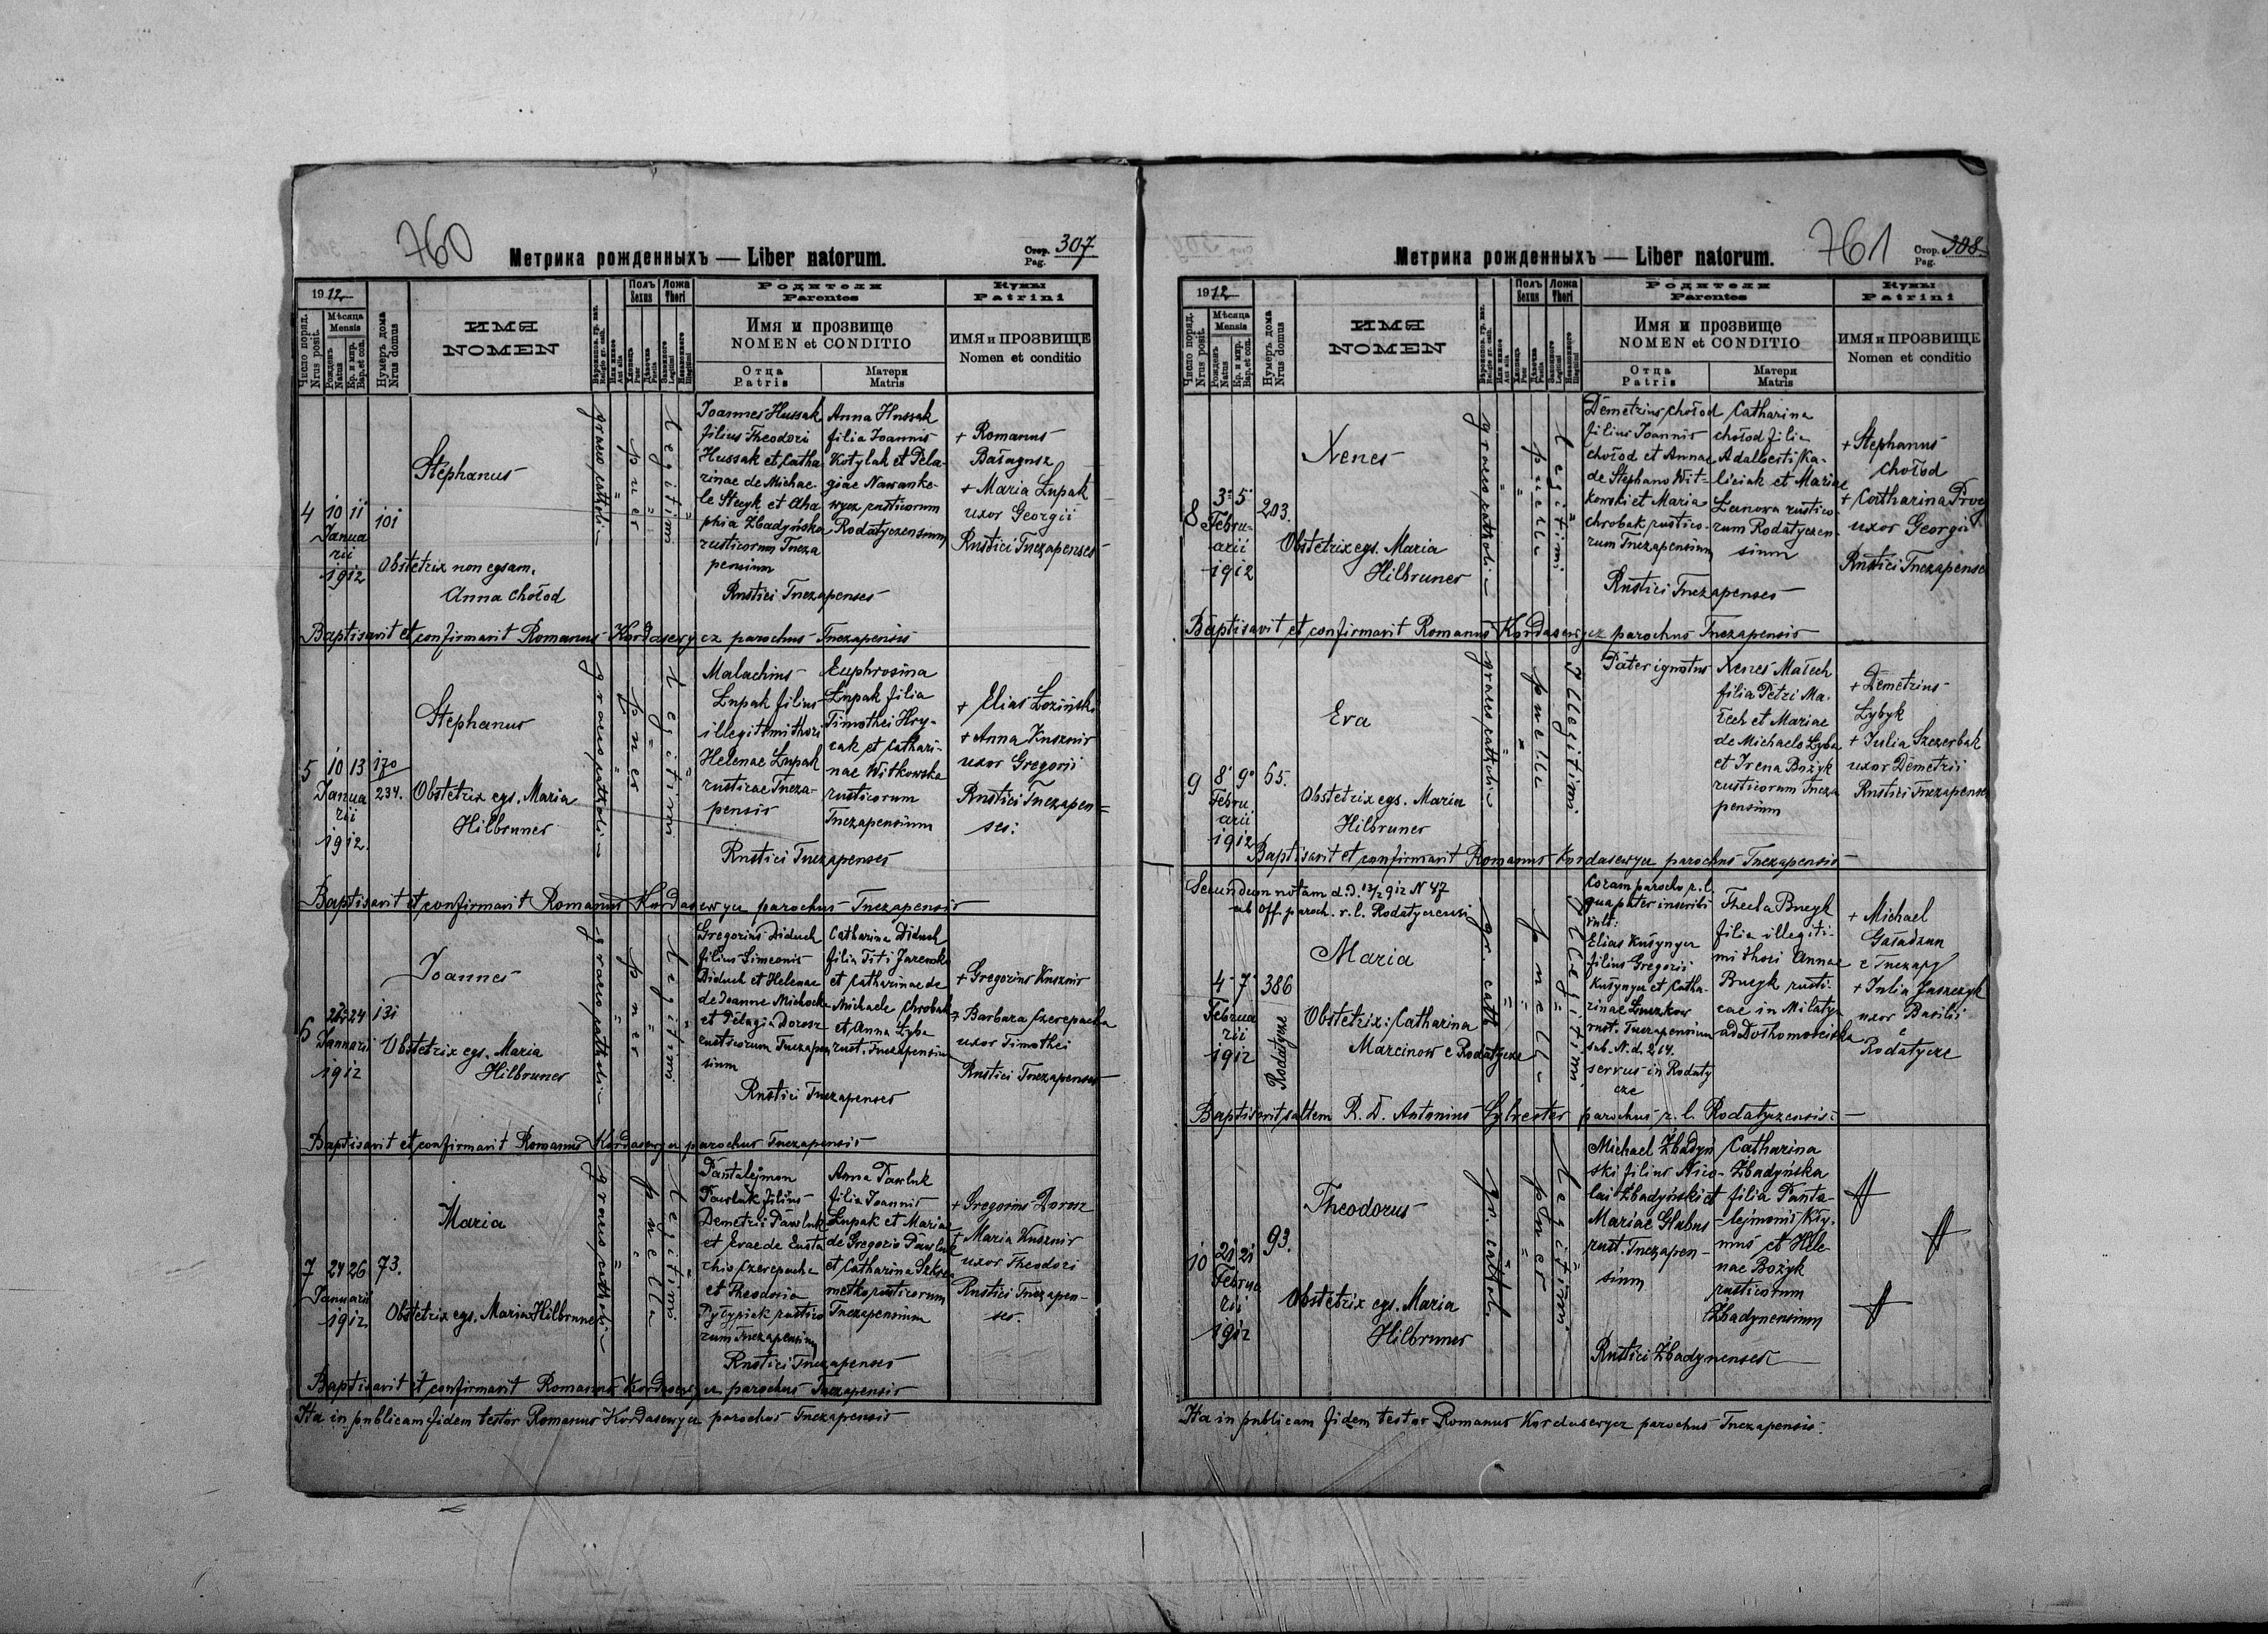 760
Метрика рожденныхъ — Liber natorum.
Стор. Pag. 307
1912
Число поряд. Nrus posit.
Мѣсяца Mensis
Рожденъ Natus
Кр. и мир. Bap. et con.
Нумеръ дома Nrus domus
ИМЯ
NOMEN
Полъ Sexus
Ложа Thori
Родители
Parentes
Имя и прозвище
NOMEN et CONDITIO
Отца
Patris
Матери
Matris
Кумы
Patrini
ИМЯ и ПРОЗВИЩЕ
Nomen et conditio
4
10 11
Janua
rii
1912
101
Stephanus
Obstetrix non egsam.
Anna Chołod
graeco catholi-
puer
legitimi
Joannes Hussak
filius Theodori
Hussak et Catha
rinae de Michae
le Stecyk et Aha
phia Zbadyńska
rusticorum Tucza
pensium
Anna Hussak
filia Joannis
Kotylak et Pela-
giae Nawanke-
wycz rusticorum
Rodatyczensium
Rustici Tuczapenses
+ Romanus
Bałagusz
+ Maria Łupak
uxor Georgii
Rustici Tuczapenses
Baptisavit et confirmavit Romanus Kordasewycz parochus Tuczapensis
5
10 13
Janua
rii
1912.
170
234.
Stephanus
Obstetrix egs. Maria
Hilbruner
graeco catholi-
puer
legitimi
Malachius
Łupak filius
illegitimi thori
Helenae Łupak
rusticae Tucza-
pensis
Euphrosina
Łupak filia
Timothei Hry-
cak et Cathari-
nae Witkowska
rusticorum
Tuczapensium
Rustici Tuczapenses
+ Elias Łoziński
+ Anna Kusznir
uxor Gregorii
Rustici Tuczapen=
ses:
Baptisavit et confirmavit Romanus Kordasewycz parochus Tuczapensis
6
24
Januarii
1912
131
Joannes
Obstetrix egs. Maria
Hilbruner
graeco catholi-
puer
legitimi
Gregorius Diduch
filius Simeonis
Diduch et Helenae
de Joanne
et Pelagia Dorosz
rusticorum Tuczapen
sium
Catharina Diduch
filia Titi
et Catharinae de
Michaele Chrobak
et Anna Łyba
rust. Tuczapensium
Rustici Tuczapenses
+ Gregorius Kusznir
+ Barbara Czerepacha
uxor Timothei
Rustici Tuczapenses
Baptisavit et confirmavit Romanus Kordasewycz parochus Tuczapensis
7
24 26
Januarii
1912
73.
Maria
Obstetrix egs. Maria Hilbruner
graeco catholi-
puella
legitimi
Pantalejmon
Pawluk filius
Demetrii Pawluk
et Evae de Eusta
chio Czerepacha
et Theodosia
Pyłypiak rustico
rum Tuczapensium
Anna Pawluk
filia Joannis
Łupak et Mariae
de Gregorio Pawluk
et Catharina
rusticorum
Tuczapensium
Rustici Tuczapenses
+ Gregorius Dorosz
+ Maria Kusznir
uxor Theodori
Rustici Tuczapen-
ses.
Baptisavit et confirmavit Romanus Kordasewycz parochus Tuczapensis
Ita in publicam fidem testor Romanus Kordasewycz parochus Tuczapensis
761
Метрика рожденныхъ — Liber natorum.
Стор. Pag. 308
1912
Число поряд. Nrus posit.
Мѣсяца Mensis
Рожденъ Natus
Кр. и мир. Bap. et con.
Нумеръ дома Nrus domus
ИМЯ
NOMEN
Полъ Sexus
Ложа Thori
Родители
Parentes
Имя и прозвище
NOMEN et CONDITIO
Отца
Patris
Матери
Matris
Кумы
Patrini
ИМЯ и ПРОЗВИЩЕ
Nomen et conditio
8
3 5
Febru-
arii
1912
203.
Xenes
Obstetrix egs. Maria
Hilbruner
graeco catholi-
puella
legitimi
Demetrius Chołod
filius Joannis
Chołod et Annae
de Stephano Wit-
kowski et Maria
Chrobak rustico-
rum Tuczapensium
Catharina
Chołod filia
Adalberti Ka-
liciak et Mariae
rustico-
rum Rodatyczen-
sium
Rustici Tuczapenses
+ Stephanus
Chołod
+ Catharina
uxor Georgii
Rustici Tuczapenses
Baptisavit et confirmavit Romanus Kordasewycz parochus Tuczapensis
9
8 9
Febru
arii
1912
65.
Eva
Obstetrix egs. Maria
Hilbruner
graeco catholi-
puella
Illegitimi
Pater ignotus
Xenes Małech
filia Petri Ma-
łech et Mariae
de Michaelo Łyba
et Irena Bożyk
rusticorum Tucza
pensium
+ Demetrius
Łybyk
+ Julia Szczerbak
uxor Demetrii
Rustici Tuczapenses
Baptisavit et confirmavit Romanus Kordasewycz parochus Tuczapensis
Secundum notam d.d. 13/2 912 N 47
ab Off. paroch. r. l. Rodatyczensi
4 7
Februa
rii
1912
386
Rodatycze
Maria
Obstetrix: Catharina
Marcinow e Rodatycze
gr. cath
puella
Illegitimi
Coram parocho r. l.
qua pater inscribi
vult:
Elias Kuśynycz
filius Gregorii
Kuśynycz et Catha-
rinae
rust. Tuczapensium
sub. N. d. 264.
servus in Rodaty
cze
Thecla Bucyk
filia illegiti-
mi thori Annae
Bucyk rusti-
cae in Milatyn
ad Dołhomościska
+ Michael
Gaładzun
e Tuczapy
+ Julia Jaszczyk
uxor Basilii
e
Rodatycze
Baptisavit saltem R. D. Antonius Sylvester parochus r. l. Rodatyczensis:
10
21 21
Februa
rii
1912
93.
Theodorus
Obstetrix egs. Maria
Hilbruner
gr. cathol.
puer
legitimi
Michael Zbadyń
ski filius Nico-
lai Zbadyński et
Mariae Hlubus
rust. Tuczapen-
sium
Catharina
Zbadyńska
filia Panta-
lejmonis
et Hele-
nae Bożyk
rusticorum
Zbadynensium
Rustici Zbadynenses
Ita in publicam fidem testor Romanus Kordasewycz parochus Tuczapensis.